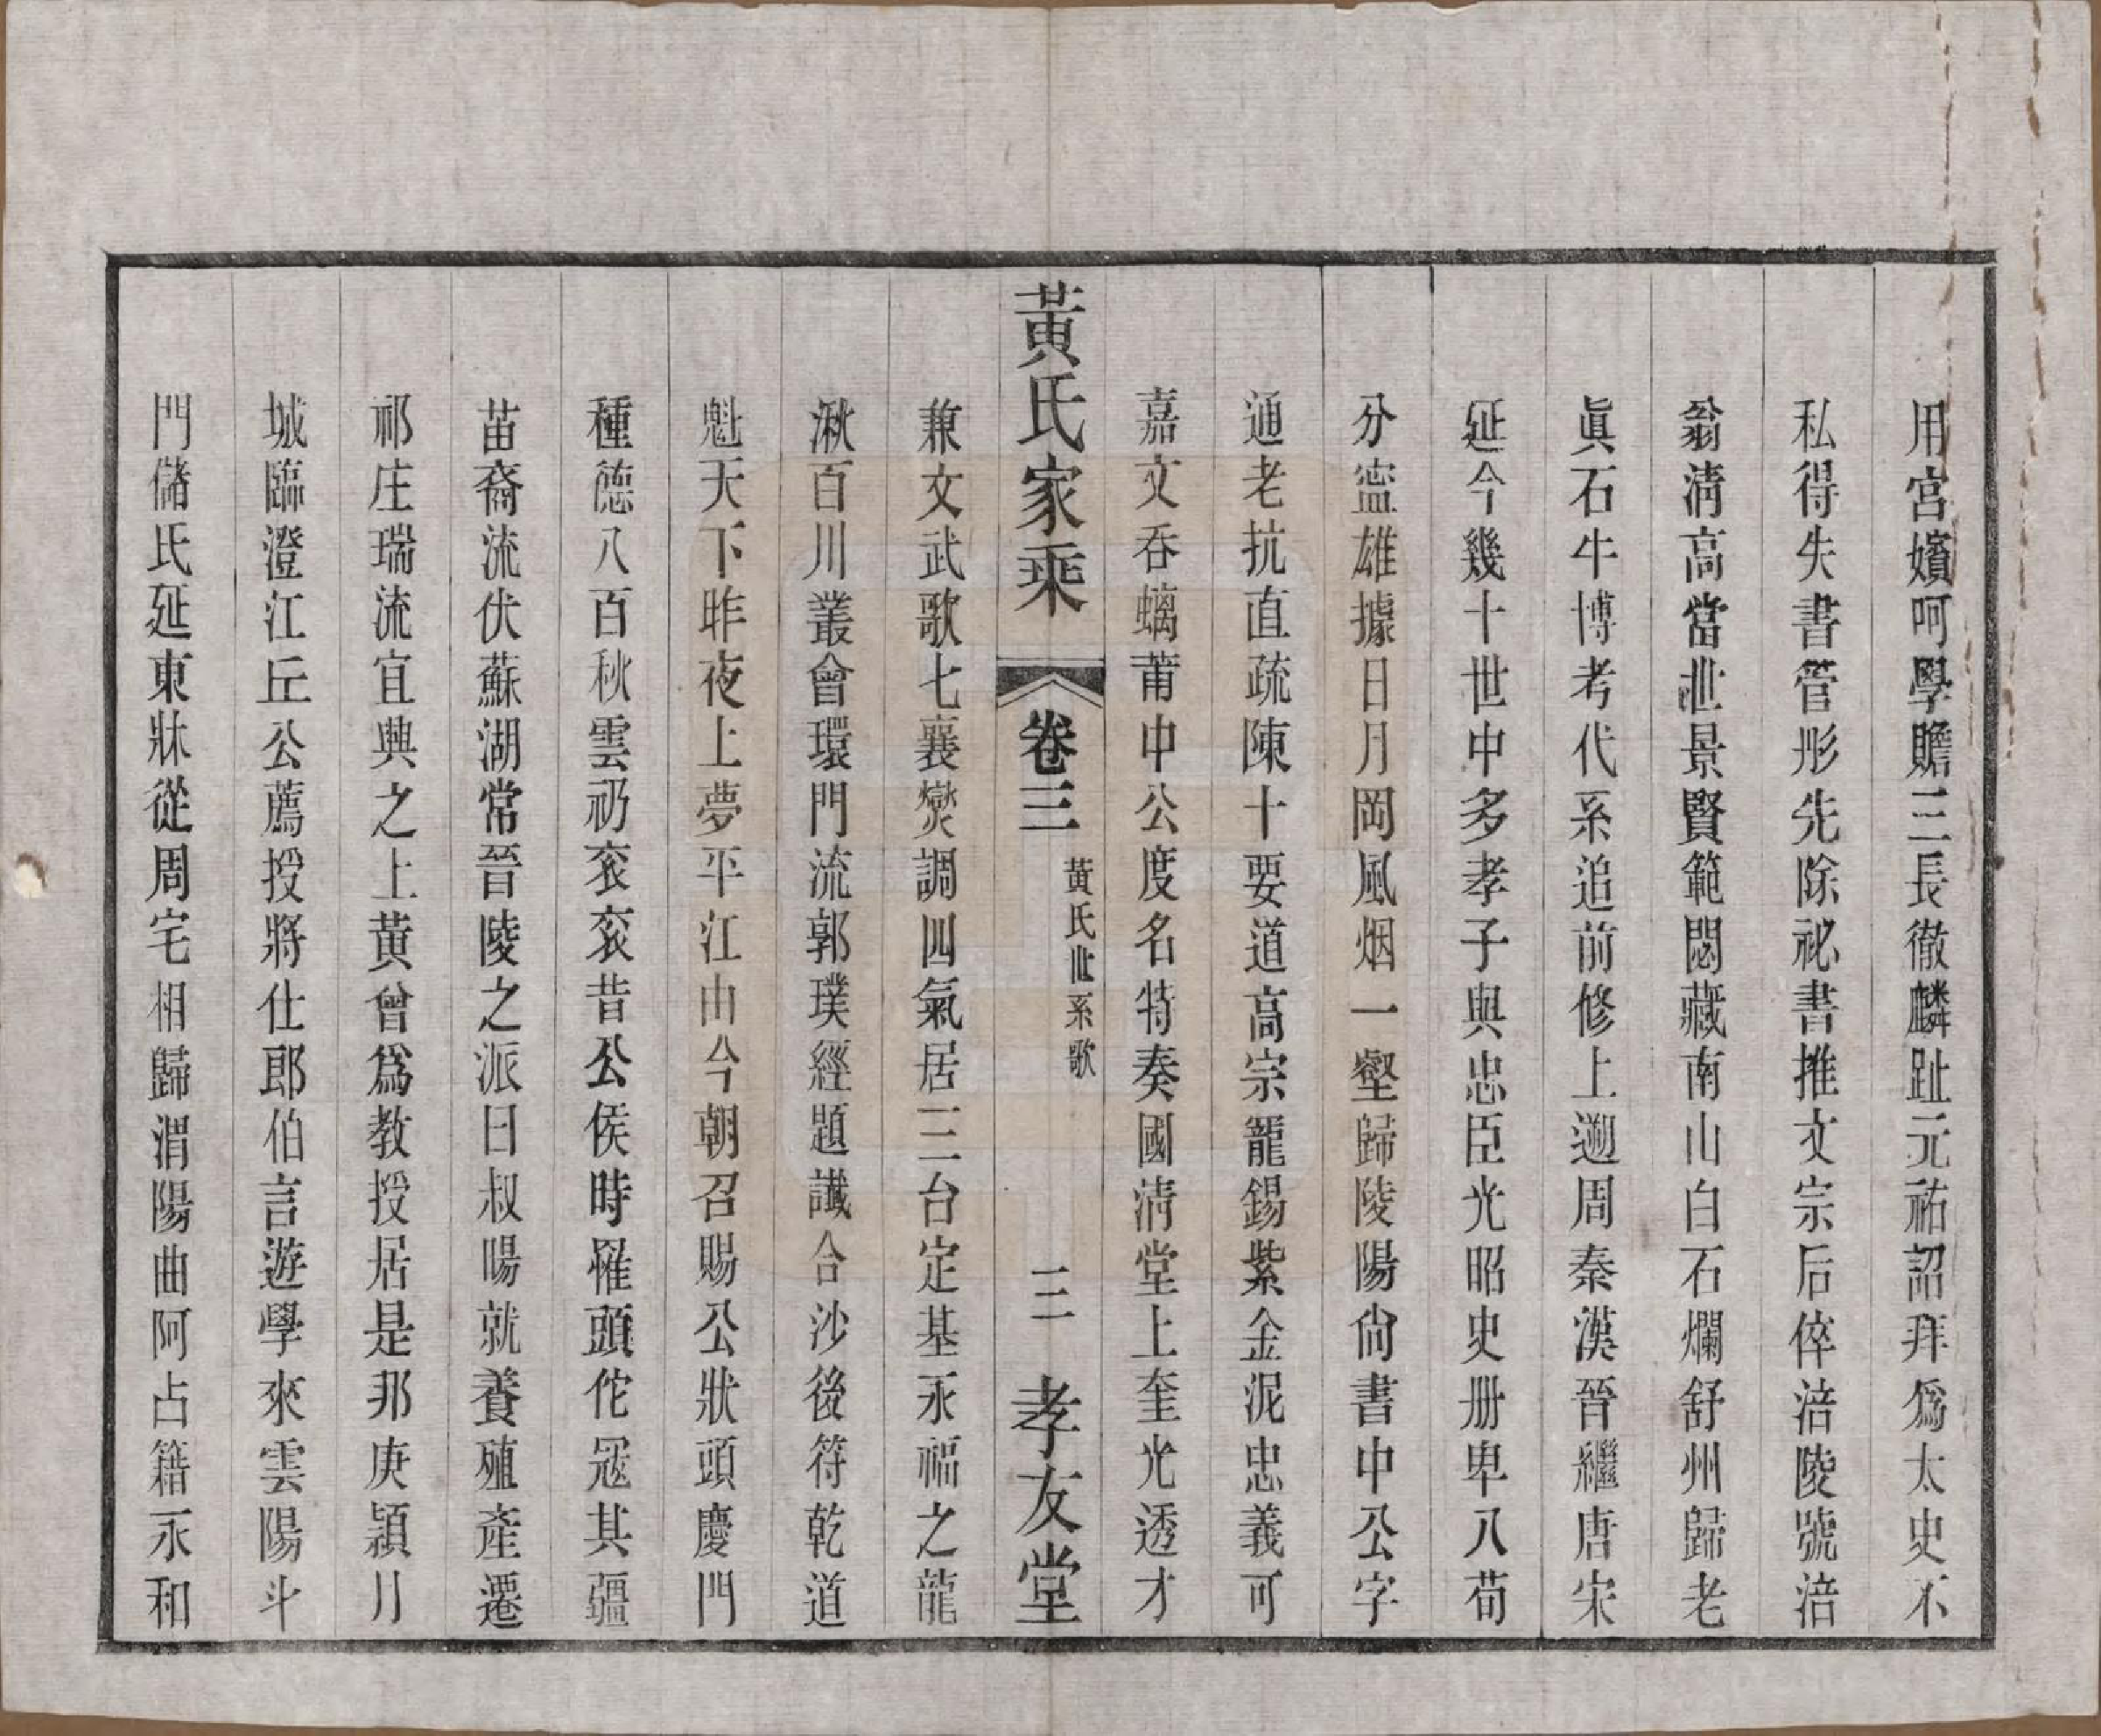 用宮嬪呵學贍三長徹麟趾元祐詔拜爲太史不
私得失書管彤先除祕書推文宗后倅涪陵號涪
翁淸高當世景賢範閟藏南山白石爛舒州歸老
眞石牛博考代系追前修上遡周秦漢晉繼唐宋
延今幾十世中多孝子與忠臣光昭史册卑八荀
分寍雄據日月岡風烟一壑歸陵陽尙書中公字
通老抗直疏陳十要道高宗寵錫紫金泥忠義可
嘉文吞螭莆中公度名特奏國淸堂上奎光透才
黃氏家乘
卷三
黃氏世系歌
三
孝友堂
兼文武歌七襄爕調四氣居三台定基永福之龍
湫百川叢會環門流郭璞經題讖合沙後符乾道
魁天下昨夜上夢平江由今朝召賜公狀頭慶門
種德八百秋雲礽衮衮昔公侯時罹頭佗冦其疆
苗裔流伏蘇湖常晉陵之派曰叔暘就養殖產遷
祁庄瑞流宜興之上黃曾爲教授居是邦庚穎川
城臨澄江丘公薦授將仕郎伯言遊學來雲陽斗
門儲氏延東牀從周宅相歸渭陽曲阿占籍永和